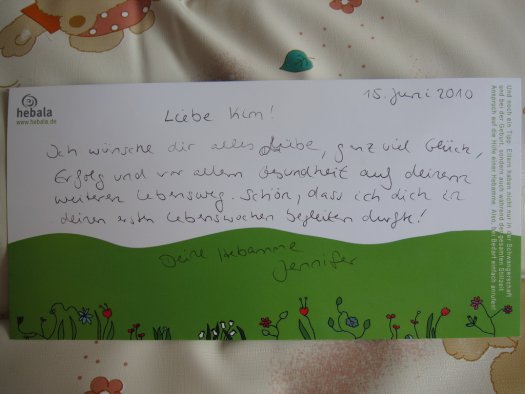 hebala
www.hebala.de
15. Juni 2010
Liebe Kim!
Ich wünsche dir alles Liebe, ganz viel Glück,
Erfolg und vor allem Gesundheit auf deinem
weiteren Lebensweg. Schön, dass ich dich in
deinen ersten Lebenswochen begleiten durfte!
Deine Hebamme
Jennifer
Und noch ein Tipp: Eltern haben nicht nur in der Schwangerschaft
und bei der Geburt, sondern auch während der gesamten Stillzeit
Anspruch auf die Hilfe einer Hebamme. Also, bei Bedarf einfach anrufen!